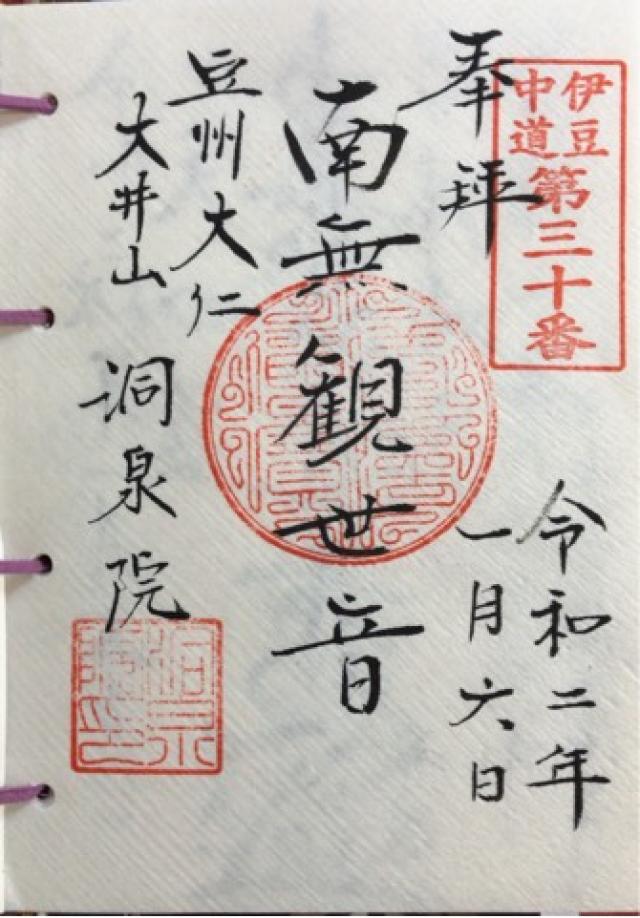 伊豆
中道
第三十番
奉拝
令和二年
一月六日
南無観世音
豆州大仁
大井山 洞泉院